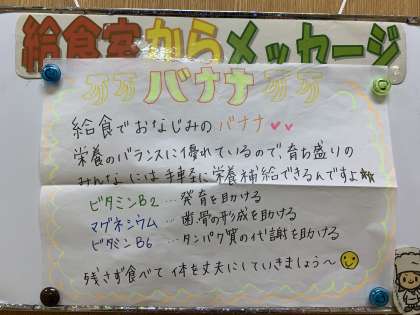 給食室からメッセージ
バナナ
給食でおなじみのバナナ
栄養のバランスに優れているので、育ち盛りの
みんなには手軽に栄養補給できるんですよ
ビタミンB2…発育を助ける
マグネシウム…歯骨の形成を助ける
ビタミンB6…タンパク質の代謝を助ける
残さず食べて体を丈夫にしていきましょう〜